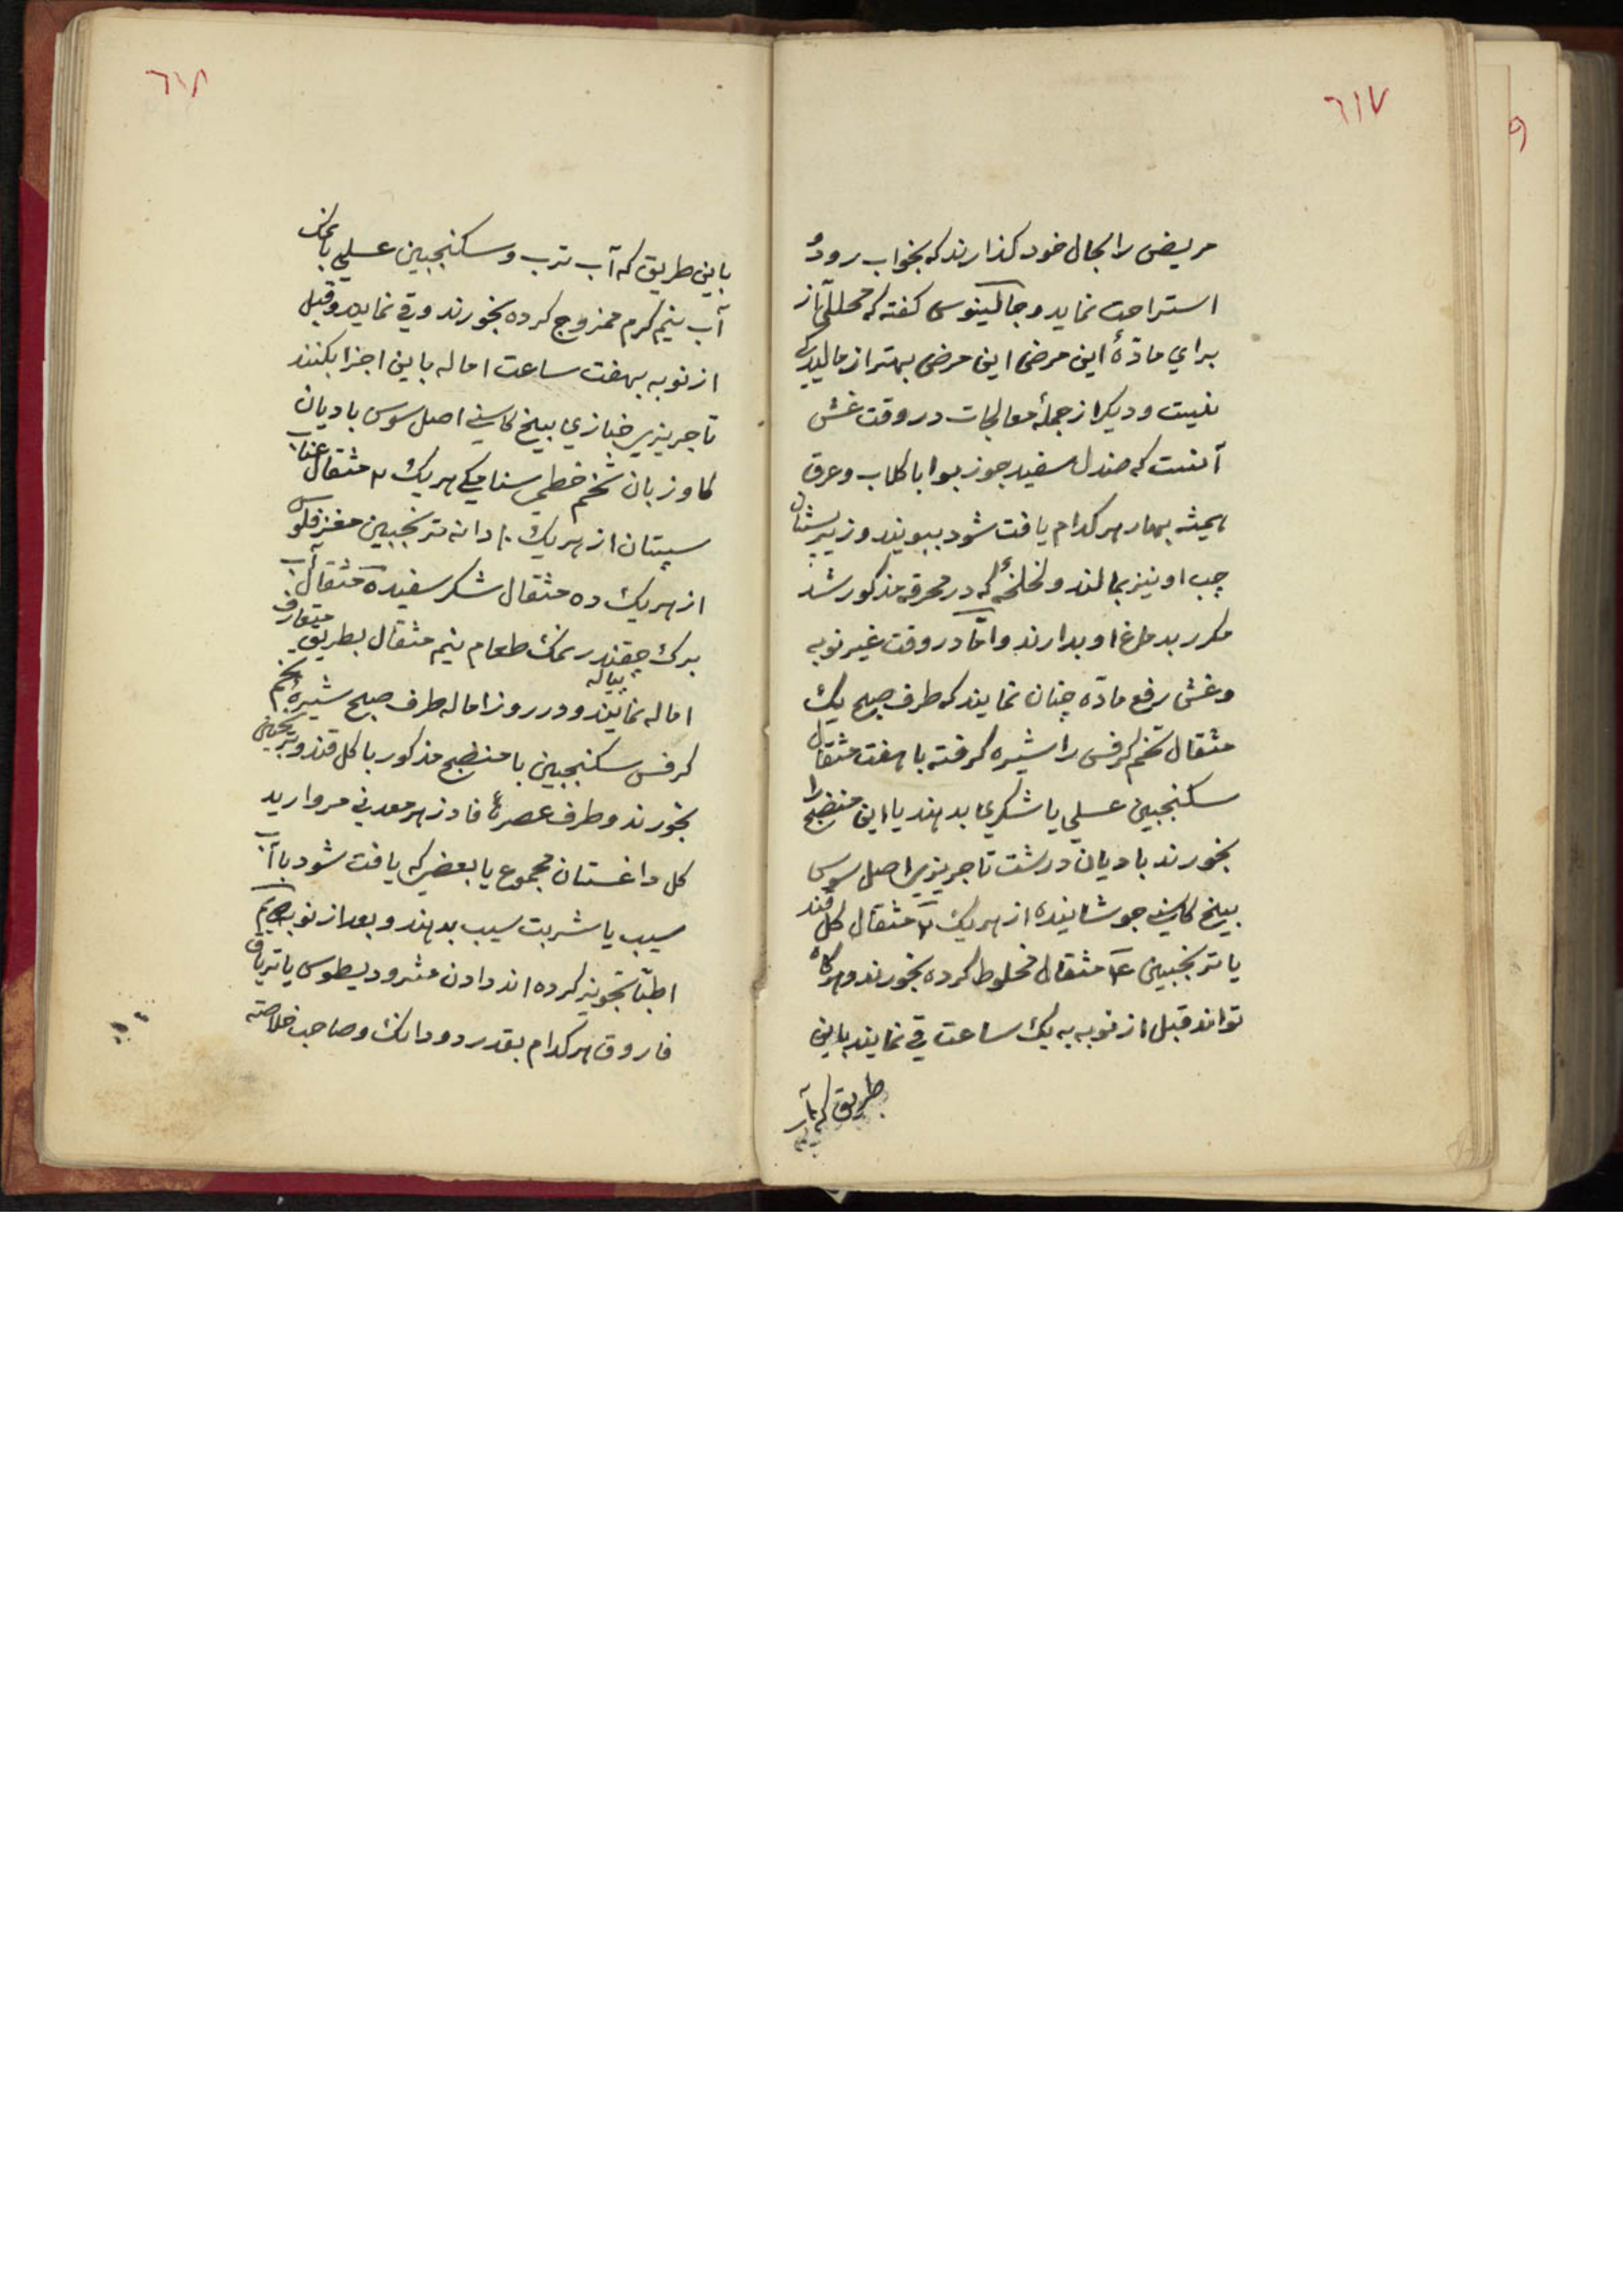 ٦١٧
مریض را بحال خود کذارند که بخواب رود و
استراحت نماید و جالینوس کفته که محللی از
برای مادّهٔ این مرض این مرض بهتر از مالیدن
نیست و دیکر از جملهٔ معالجات در وقت غش
آنست که صندل سفید جوز بوا با کلاب و عرق
بهار هر کدام یافت شود ببویند و زیر پستان
چپ او نیز بمالند و لخلخهٔ که در محرقه مذکور شد
مکرر بدماغ او بدارند و امّا در وقت غیر نوبه
و غش رفع مادّه چنان نمایند که طرف صبح یک
مثقال تخم کرفس را شیره کرفته با هفت مثقال
سکنجبین عسلي یا شکري بدهند یا این منضج را
بخورند بادیان درشت تاجریزي اصل سوس
بیخ کاسني جوشانیده از هر یک ۲ مثقال کل قند
یا ترنجبین ۱۴ مثقال مخلوط کرده بخورند و هرکاه
تواند قبل از نوبه به یک ساعت قي نمایند باین
طریق که آب
٦١٨
باین طریق که آب ترب و سکنجبین عسلي با نمک
آب نیم کرم ممزوج کرده بخورند و قي نماید و قبل
از نوبه بهفت ساعت اماله باین اجزا بکنند
تاجریزي خبازي بیخ کاسني اصل سوس بادیان
کاو زبان تخم خطمي سناء مکي هر یک ۲ مثقال عناب
سپستان از هر یک ۲۰ دانه ترنجبین مغز فلوس
از هر یک ده مثقال شکر سفید ه مثقال آب
برک چقندر پیاله نمک طعام نیم مثقال بطریق متعارف
اماله نمایند و در روز اماله طرف صبح شیرهٔ تخم
کرفس سکنجبین با منضج مذکور با کل قند و ترنجبین
بخورند و طرف عصرها فادزهر معدني مروارید
کل داغستان مجموع یا بعضي که یافت شود با آب
سیب یا شربت سیب بدهند و بعد از نوبه
اطبّا تجویز کرده اند دادن مثرودیطوس یا تریاق
فاروق هر کدام بقدر دو دانک و صاحب خلاصته